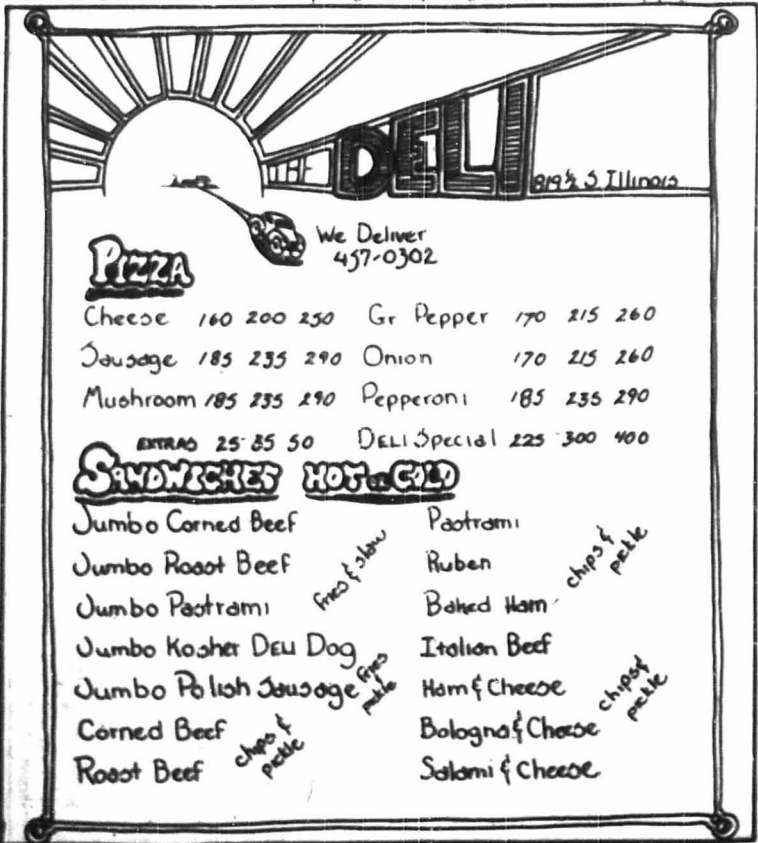 THE DELI
819½ S. Illinois
We Deliver
457-0302
PIZZA
Cheese 160 200 250 Gr Pepper 170 215 260
Sausage 185 235 290 Onion 170 215 260
Mushroom 185 235 290 Pepperoni 185 235 290
EXTRAS 25 35 50 DELI Special 225 300 400
SANDWICHES HOT or COLD
Jumbo Corned Beef
Jumbo Roast Beef
Jumbo Pastrami
fries & slaw
Jumbo Kosher DELI Dog
Jumbo Polish Sausage
fries
pickle
Corned Beef
Roast Beef
chips &
pickle
Pastrami
Ruben
Baked Ham
chips &
pickle
Italian Beef
Ham & Cheese
Bologna & Cheese
Salami & Cheese
chips &
pickle